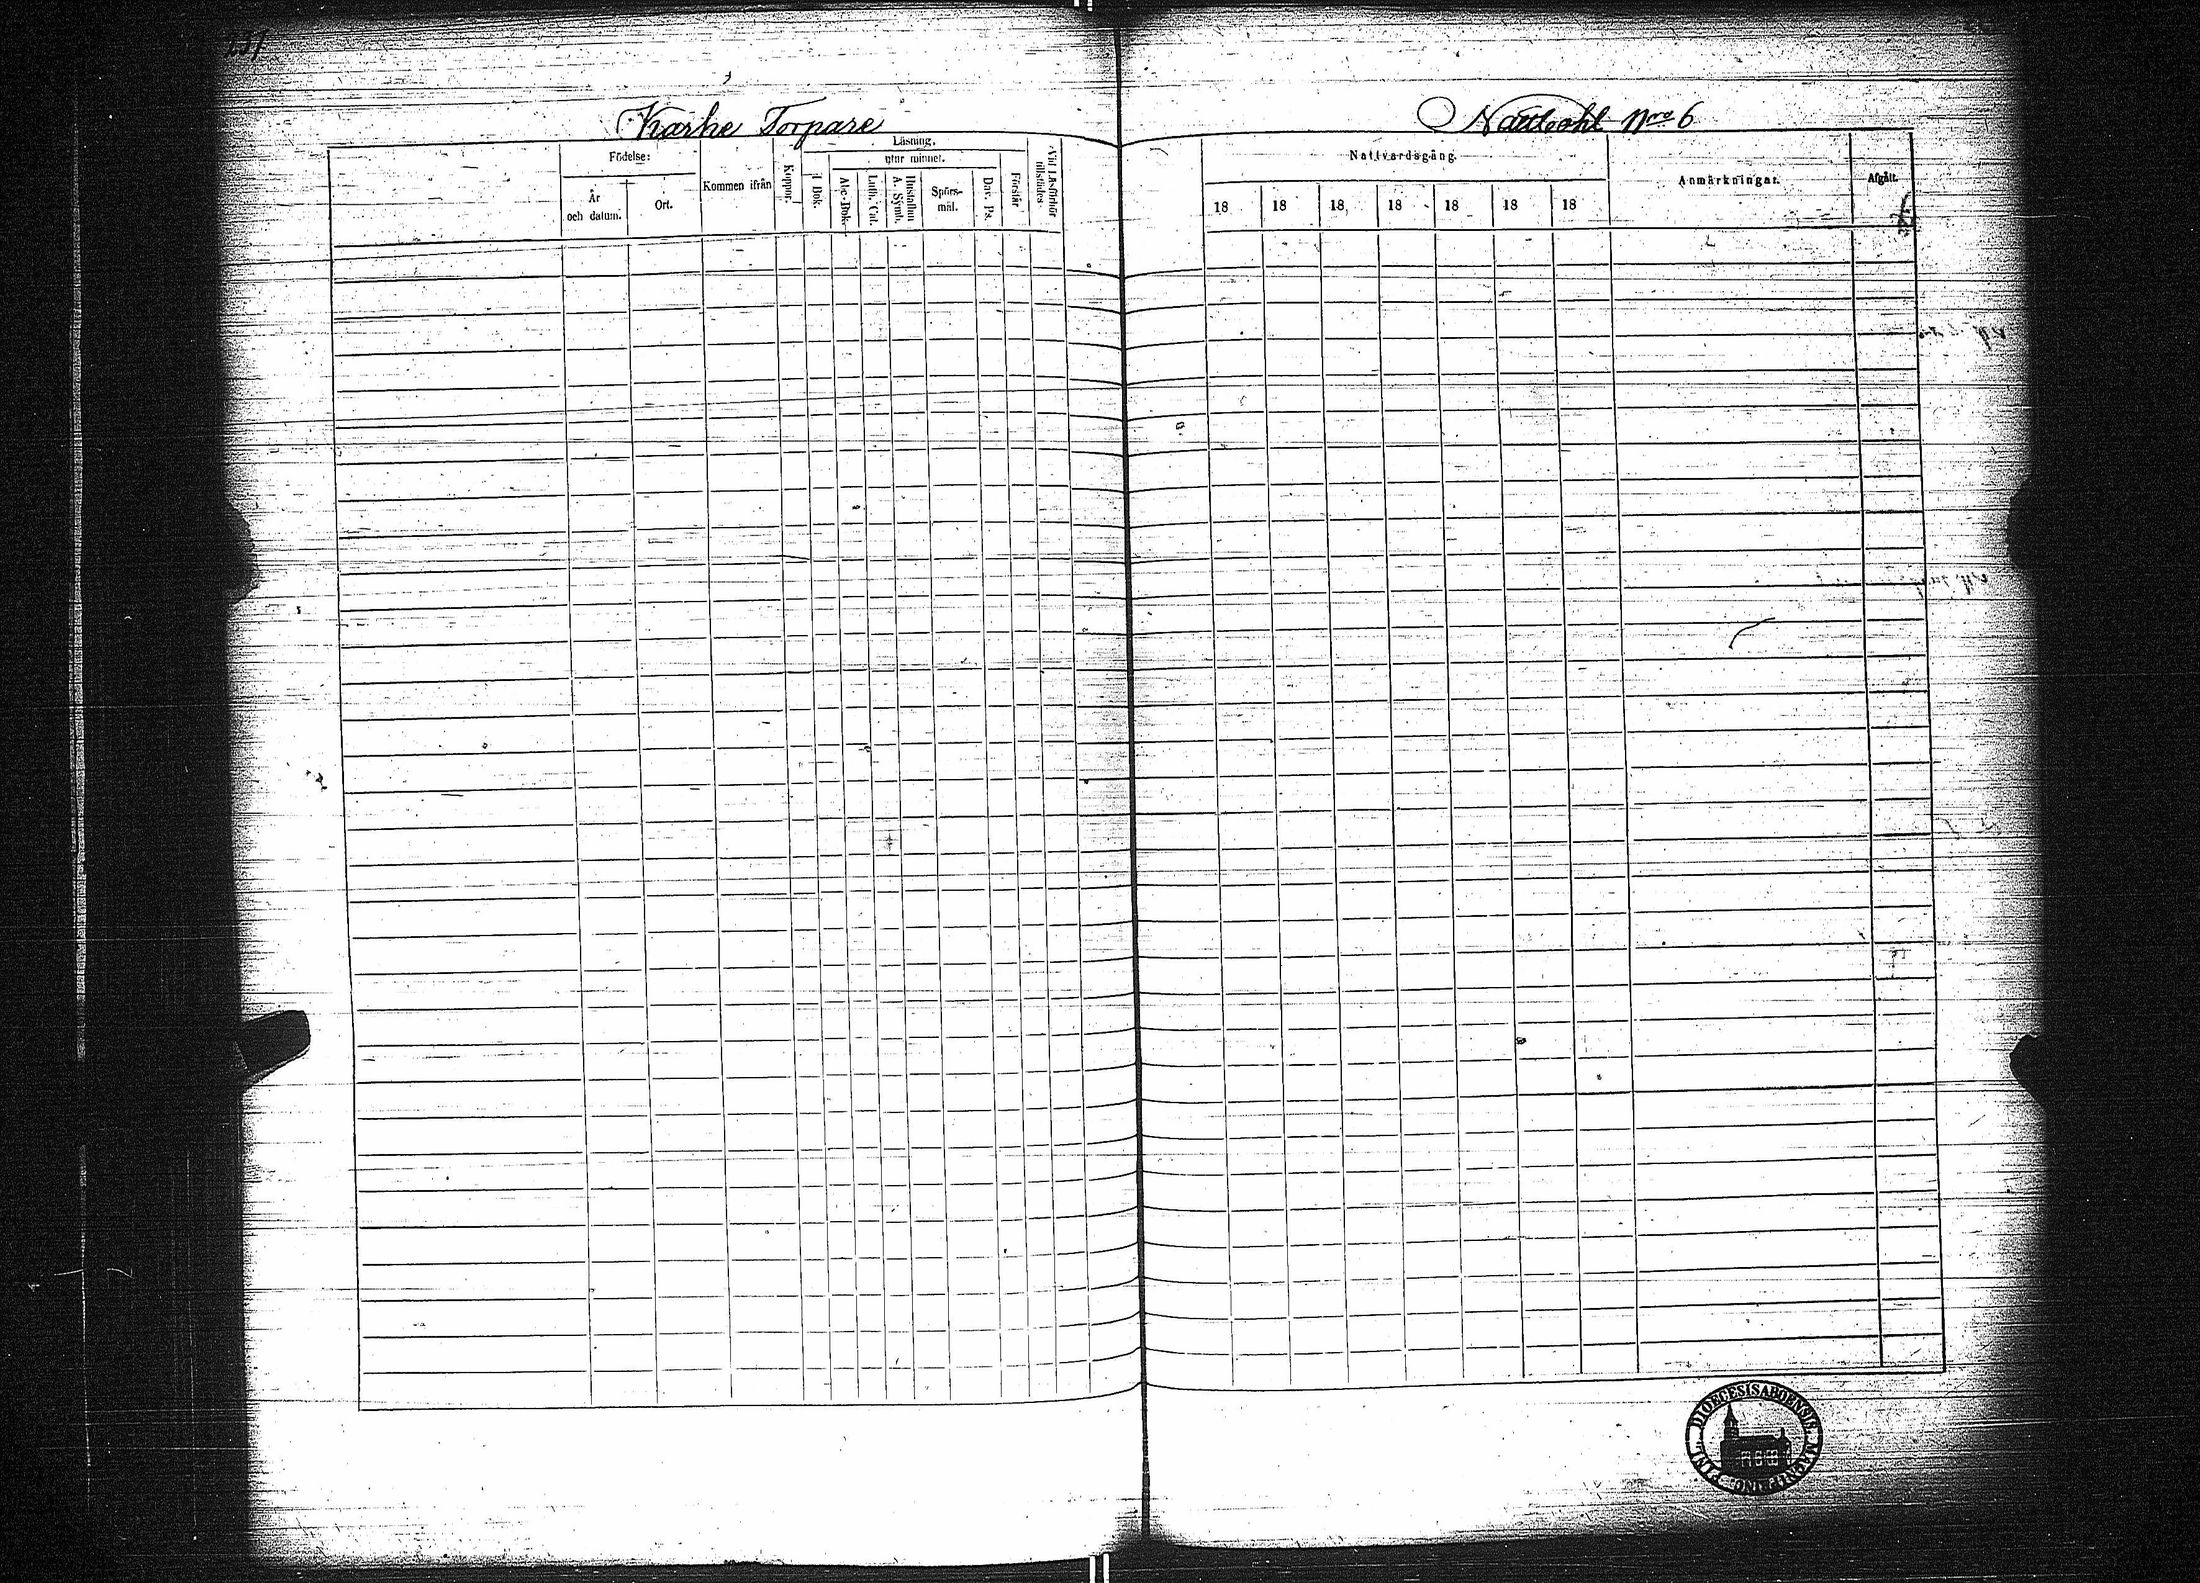 Karhe Torpare
Läsning.
Födelse:
Kommen ifrån
Koppor.
utur minnet.
Förstår
Vid Läsförhör tillstädes
År och datum.
Ort.
i Bok.
Abc-Bok.
Luth. Cat.
Hustaflan. A. Symb.
Spörs-mål.
Dav. Ps.
Nro 6
Nattvardsgång.
Anmärkningar.
Afgått.
18 18 18 18 18 18 18
DIOECESIS ABOENSIS